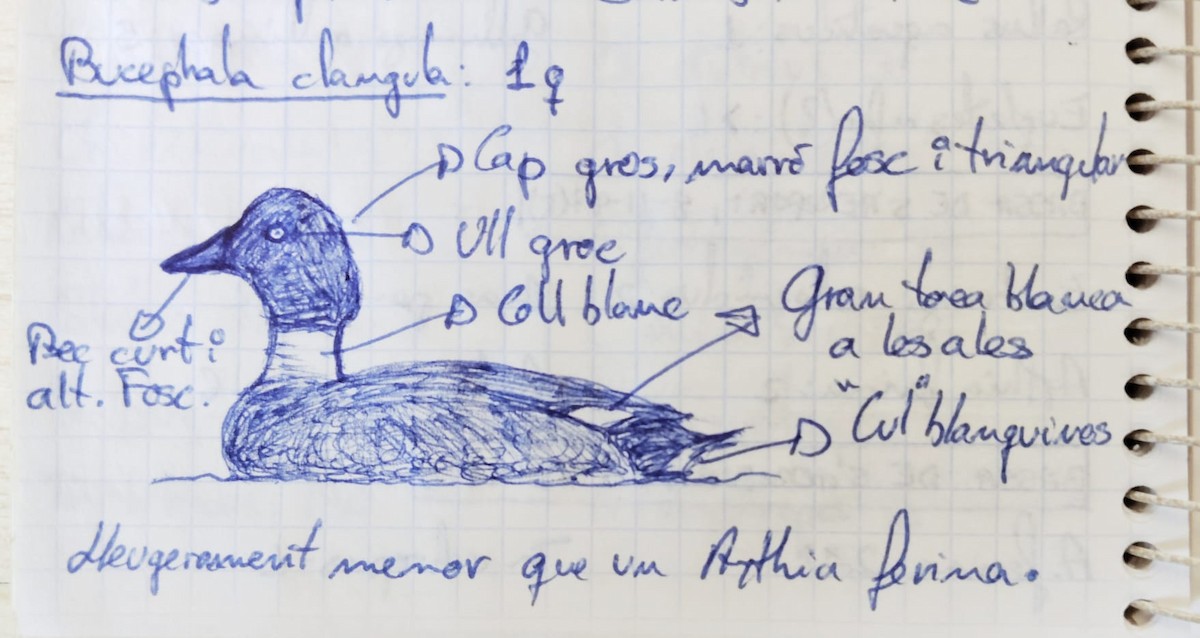 Bucephala clangula: 1♀
Cap gros, marró fosc i triangular
Ull groc
Coll blanc
Gran taca blanca
a les ales
Bec curt i
alt. Fosc.
"Cul" blanquinós
Lleugerament menor que un Aythia ferina.